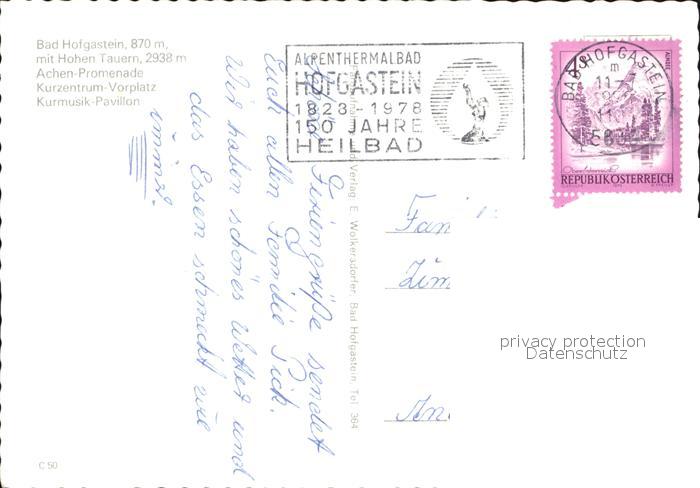 Bad Hofgastein, 870 m,
mit Hohen Tauern, 2938 m
Achen-Promenade
Kurzentrum-Vorplatz
Kurmusik-Pavillon
ALPENTHERMALBAD
HOFGASTEIN
1823-1978
150 JAHRE
HEILBAD
BAD HOFGASTEIN
11-
ALMSEE
REPUBLIK ÖSTERREICH
Feriengrüße sendet
Euch allen Familie Pich.
Wir haben schönes Wetter und
das Essen schmeckt wie
immer.
Verlag E. Wolkersdorfer, Bad Hofgastein, Tel. 364
Fam
Zim
An
privacy protection
Datenschutz
C 50